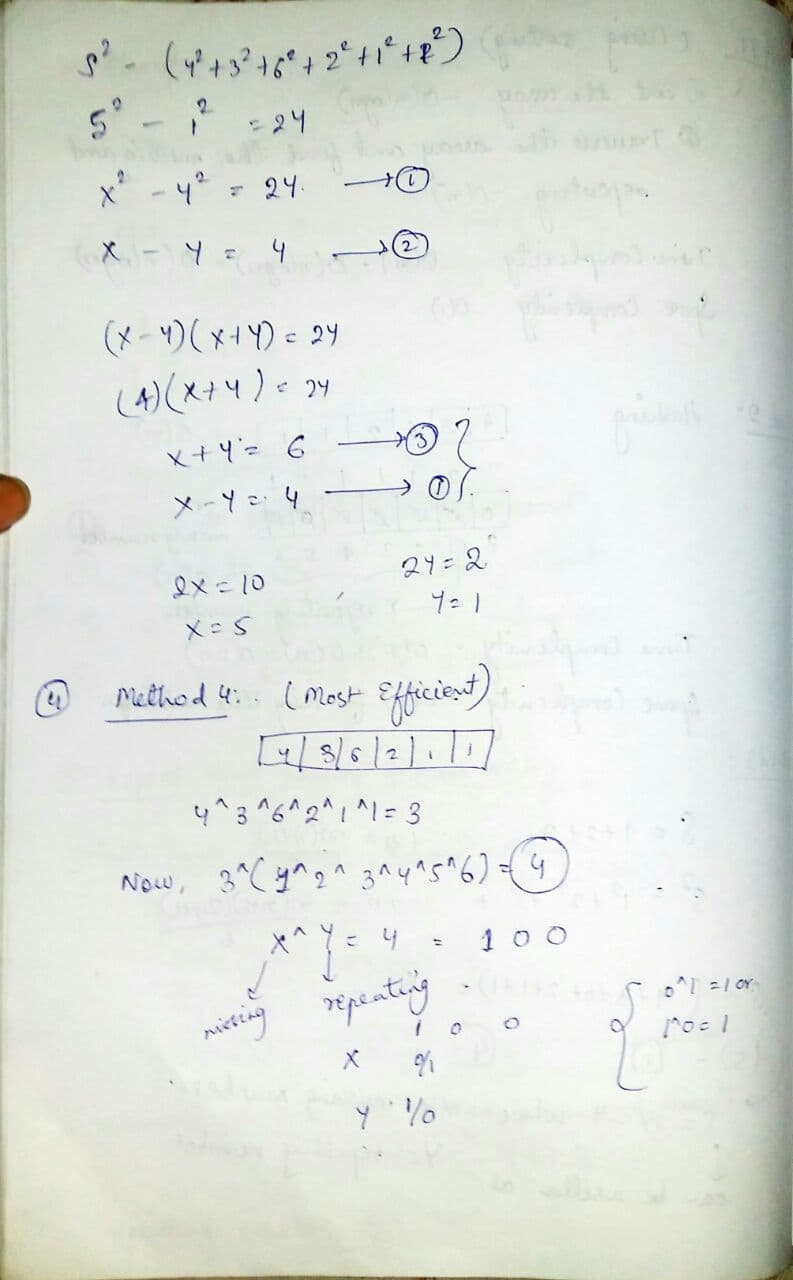 S² - (4²+3²+6²+2²+1²+1²)
5² - 1² = 24
x² - y² = 24. → ①
x - y = 4 → ②
(x-y)(x+y) = 24
(4)(x+y) = 24
x+y = 6 → ③
x-y = 4 → ①
2x = 10 , 2y = 2
x = 5 y = 1
④ Method 4: (Most Efficient)
4 | 3 | 6 | 2 | 1 | 1
4^3^6^2^1^1 = 3
Now, 3^(1^2^3^4^5^6) = 4
x^y = 4 = 100
missing repeating
1 0 0 { 0^1 = 1 or
x 0/1 1^0 = 1
y 1/0